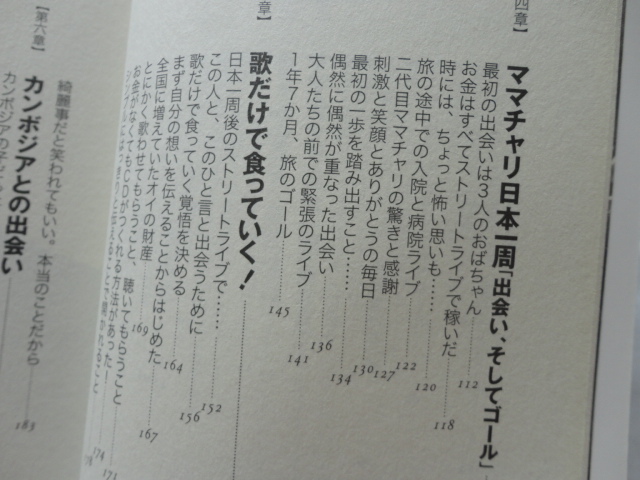 四章】
ママチャリ日本一周「出会い、そしてゴール」
最初の出会いは3人のおばちゃん 112
お金はすべてストリートライブで稼いだ 118
時には、ちょっと怖い思いも…… 120
旅の途中での入院と病院ライブ 122
二代目ママチャリの驚きと感謝 127
刺激と笑顔とありがとうの毎日 130
最初の一歩を踏み出すこと…… 134
偶然に偶然が重なった出会い 136
大人たちの前での緊張のライブ 141
1年7か月、旅のゴール 145
章】
歌だけで食っていく!
日本一周後のストリートライブで…… 152
この人と、このひと言と出会うために 156
歌だけで食っていく覚悟を決める 164
まず自分の想いを伝えることからはじめた 167
全国に増えていたオイの財産 169
とにかく歌わせてもらうこと、聴いてもらうこと 171
お金がなくてもCDがつくれる方法があった! 174
【第六章】
カンボジアとの出会い
綺麗事だと笑われてもいい。本当のことだから 183
カンボジアの子ど